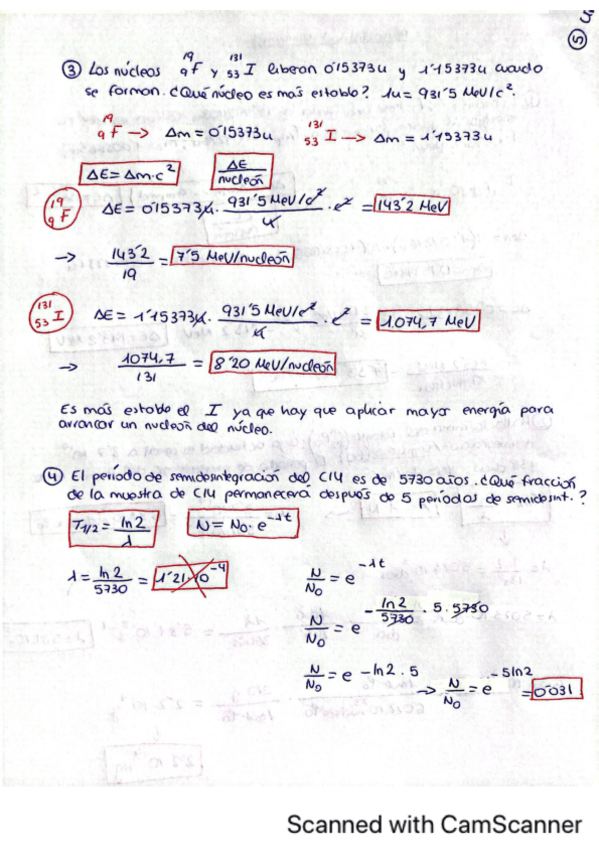 5
3 Los núcleos ¹⁹₉F y ¹³¹₅₃I liberan 0'15373u y 1'15373u cuando
se forman. ¿Qué núcleo es más estable? 1u = 931'5 MeV/c².
¹⁹₉F → Δm = 0'15373u ¹³¹₅₃I → Δm = 1'15373u
ΔE = Δm·c² ΔE/nucleón
¹⁹₉F ΔE = 0'15373u · 931'5 MeV/c² / u · c² = 143'2 MeV
→ 143'2/19 = 7'5 MeV/nucleón
¹³¹₅₃I ΔE = 1'15373u · 931'5 MeV/c² / u · c² = 1.074,7 MeV
→ 1074,7/131 = 8'20 MeV/nucleón
Es más estable el I ya que hay que aplicar mayor energía para
arrancar un nucleón del núcleo.
4 El período de semidesintegración del C14 es de 5730 años. ¿Qué fracción
de la muestra de C14 permanecerá después de 5 períodos de semidesint.?
T₁/₂ = ln2/λ N = N₀·e^-λt
λ = ln2/5730 = 1'21·10⁻⁴
N/N₀ = e^-λt
N/N₀ = e^-ln2/5730 · 5 · 5730
N/N₀ = e^-ln2·5 → N/N₀ = e^-5ln2 = 0'031
Scanned with CamScanner